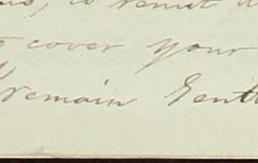 to remit
cover your
remain Gent